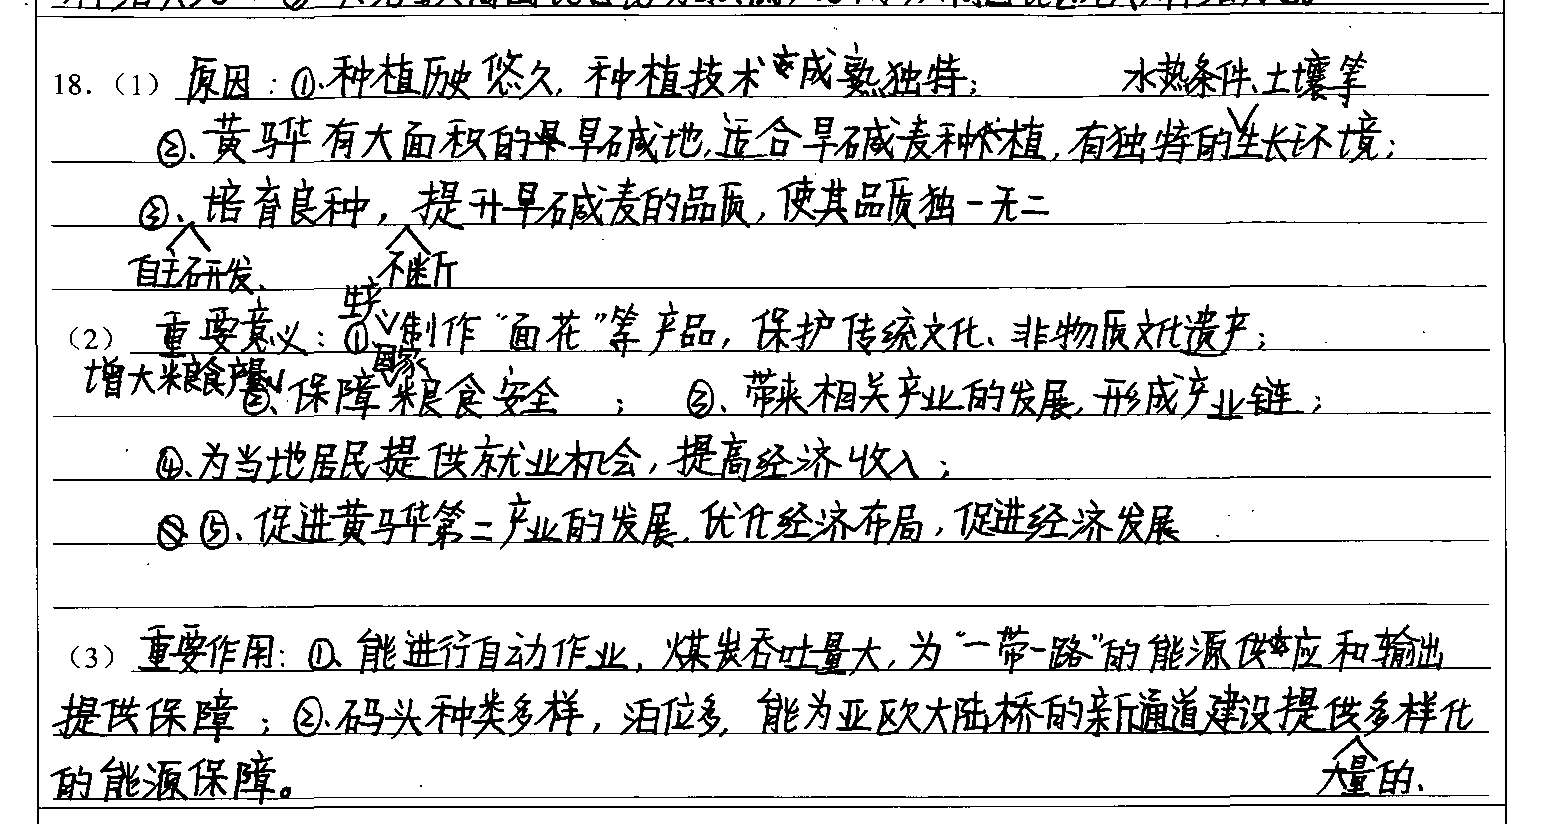 18.（1）原因：①.种植历史悠久，种植技术成熟独特； 水热条件、土壤等
②、黄马华有大面积的旱碱地，适合旱碱麦种植，有独特的生长环境；
③、培育良种，提升旱碱麦的品质，使其品质独一无二
自主研发、 不断
生产
（2） 重要意义：①、制作“面花”等产品，保护传统文化、非物质文化遗产；
国家
增大粮食产量 ②、保障粮食安全 ； ③、带来相关产业的发展，形成产业链；
④、为当地居民提供就业机会，提高经济收入；
⑤、促进黄马华第二产业的发展，优化经济布局，促进经济发展
（3）重要作用：①、能进行自动作业，煤炭吞吐量大，为“一带一路”的能源供应和输出
提供保障；②、码头种类多样，泊位多，能为亚欧大陆桥的新通道建设提供多样化
的能源保障。 大量的、